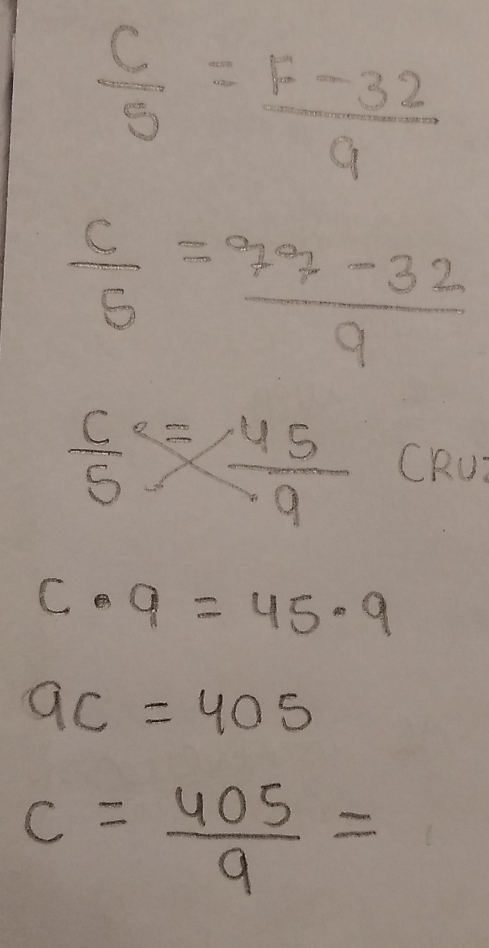 C/5 = F - 32/9
C/5 = 77 - 32/9
C/5 = 45/9
C • 9 = 45 • 9
9C = 405
C = 405/9 =